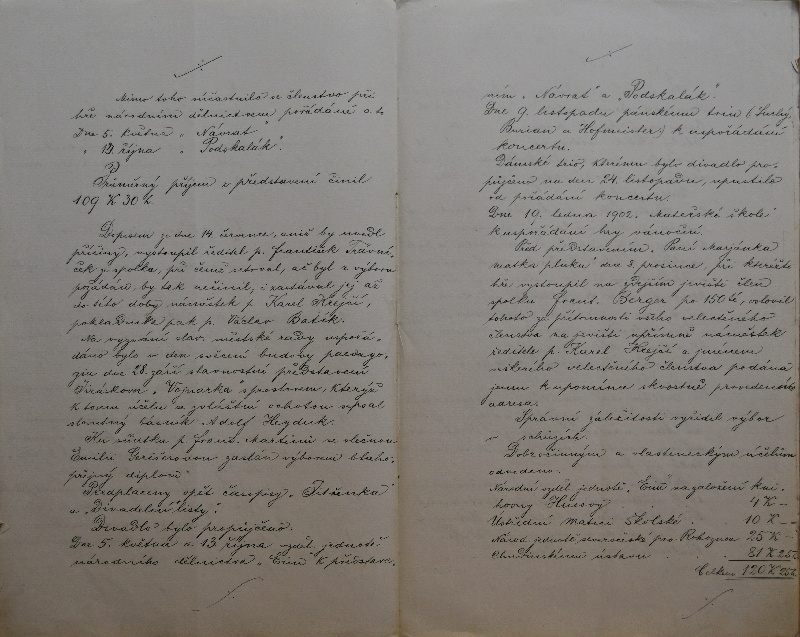 Mimo toho súčastnilo se členstvo při
hře národním dělnictvem pořádané a to
Dne 5. května „Návrat"
„ 13. října „Podskalák".
Průměrný příjem z představení činil
109 K 30 h
Dopisem ze dne 14. července, aniž by uvedl
příčiny, vystoupil ředitel p. František Trávní-
ček z spolku, při čemž setrval, ač byl z výboru
požádán, by tak neučinil, i zastával jej až
do této doby náměstek p. Karel Krejčí,
pokladníka pak p. Václav Batík.
Na vyzvání slav. městské rady uspořá-
dáno bylo v den svěcení budovy paedago-
gia dne 28. září slavnostní představení
Jiráskova „Vojnarka" s proslovem, kterýž
k tomu účelu se zvláštní ochotou upsal
slovutný básník Adolf Heyduk.
Ku sňatku p. Franc. Martínů se slečnou
Emilií zaslán výborem blaho-
přejný diplom.
Předplaceny opět časopisy
a „Divadelní listy".
Divadlo bylo propůjčeno.
Dne 5. května a 13 října vzděl. jednotě
národního dělnictva „Eriu" k představe-
ním „Návrat" a „Podskalák".
Dne 9. listopadu pánskému triu (Suchý,
Burian a Hofmeister) k uspořádání
koncertu.
Dámské trio, kterému bylo divadlo pro-
půjčeno na den 24. listopadu, upustilo
od pořádání koncertu.
Dne 10. ledna 1902. Mateřské škole
k uspořádání hry vánoční.
Před představením „Paní Marjánka
matka pluku" dne 8. prosince, při kteréžto
hře vystoupil na zdejším jevišti člen
spolku Frant. Berger po 150té, oslovil
tohoto za přítomnosti všeho velectěného
členstva na jevišti upřímně náměstek
ředitele p. Karel Krejčí a jménem
veškerého velectěného členstva podána
jemu k upomínce skvostně provedená
adresa.
Správní záležitosti vyřídil výbor
v schůzích.
Dobročinným a vlasteneckým účelům
odvedeno.
Národní vzděl. jednotě „Eriu" na založení kni-
hovny Husovy . 4 K –
Ústřední matici Školské . 10 K –
Národ. jednotě severočeské pro Rohozice 25 K –
Chudinskému ústavu . 81 K 25 h
Celkem 120 K 25 h